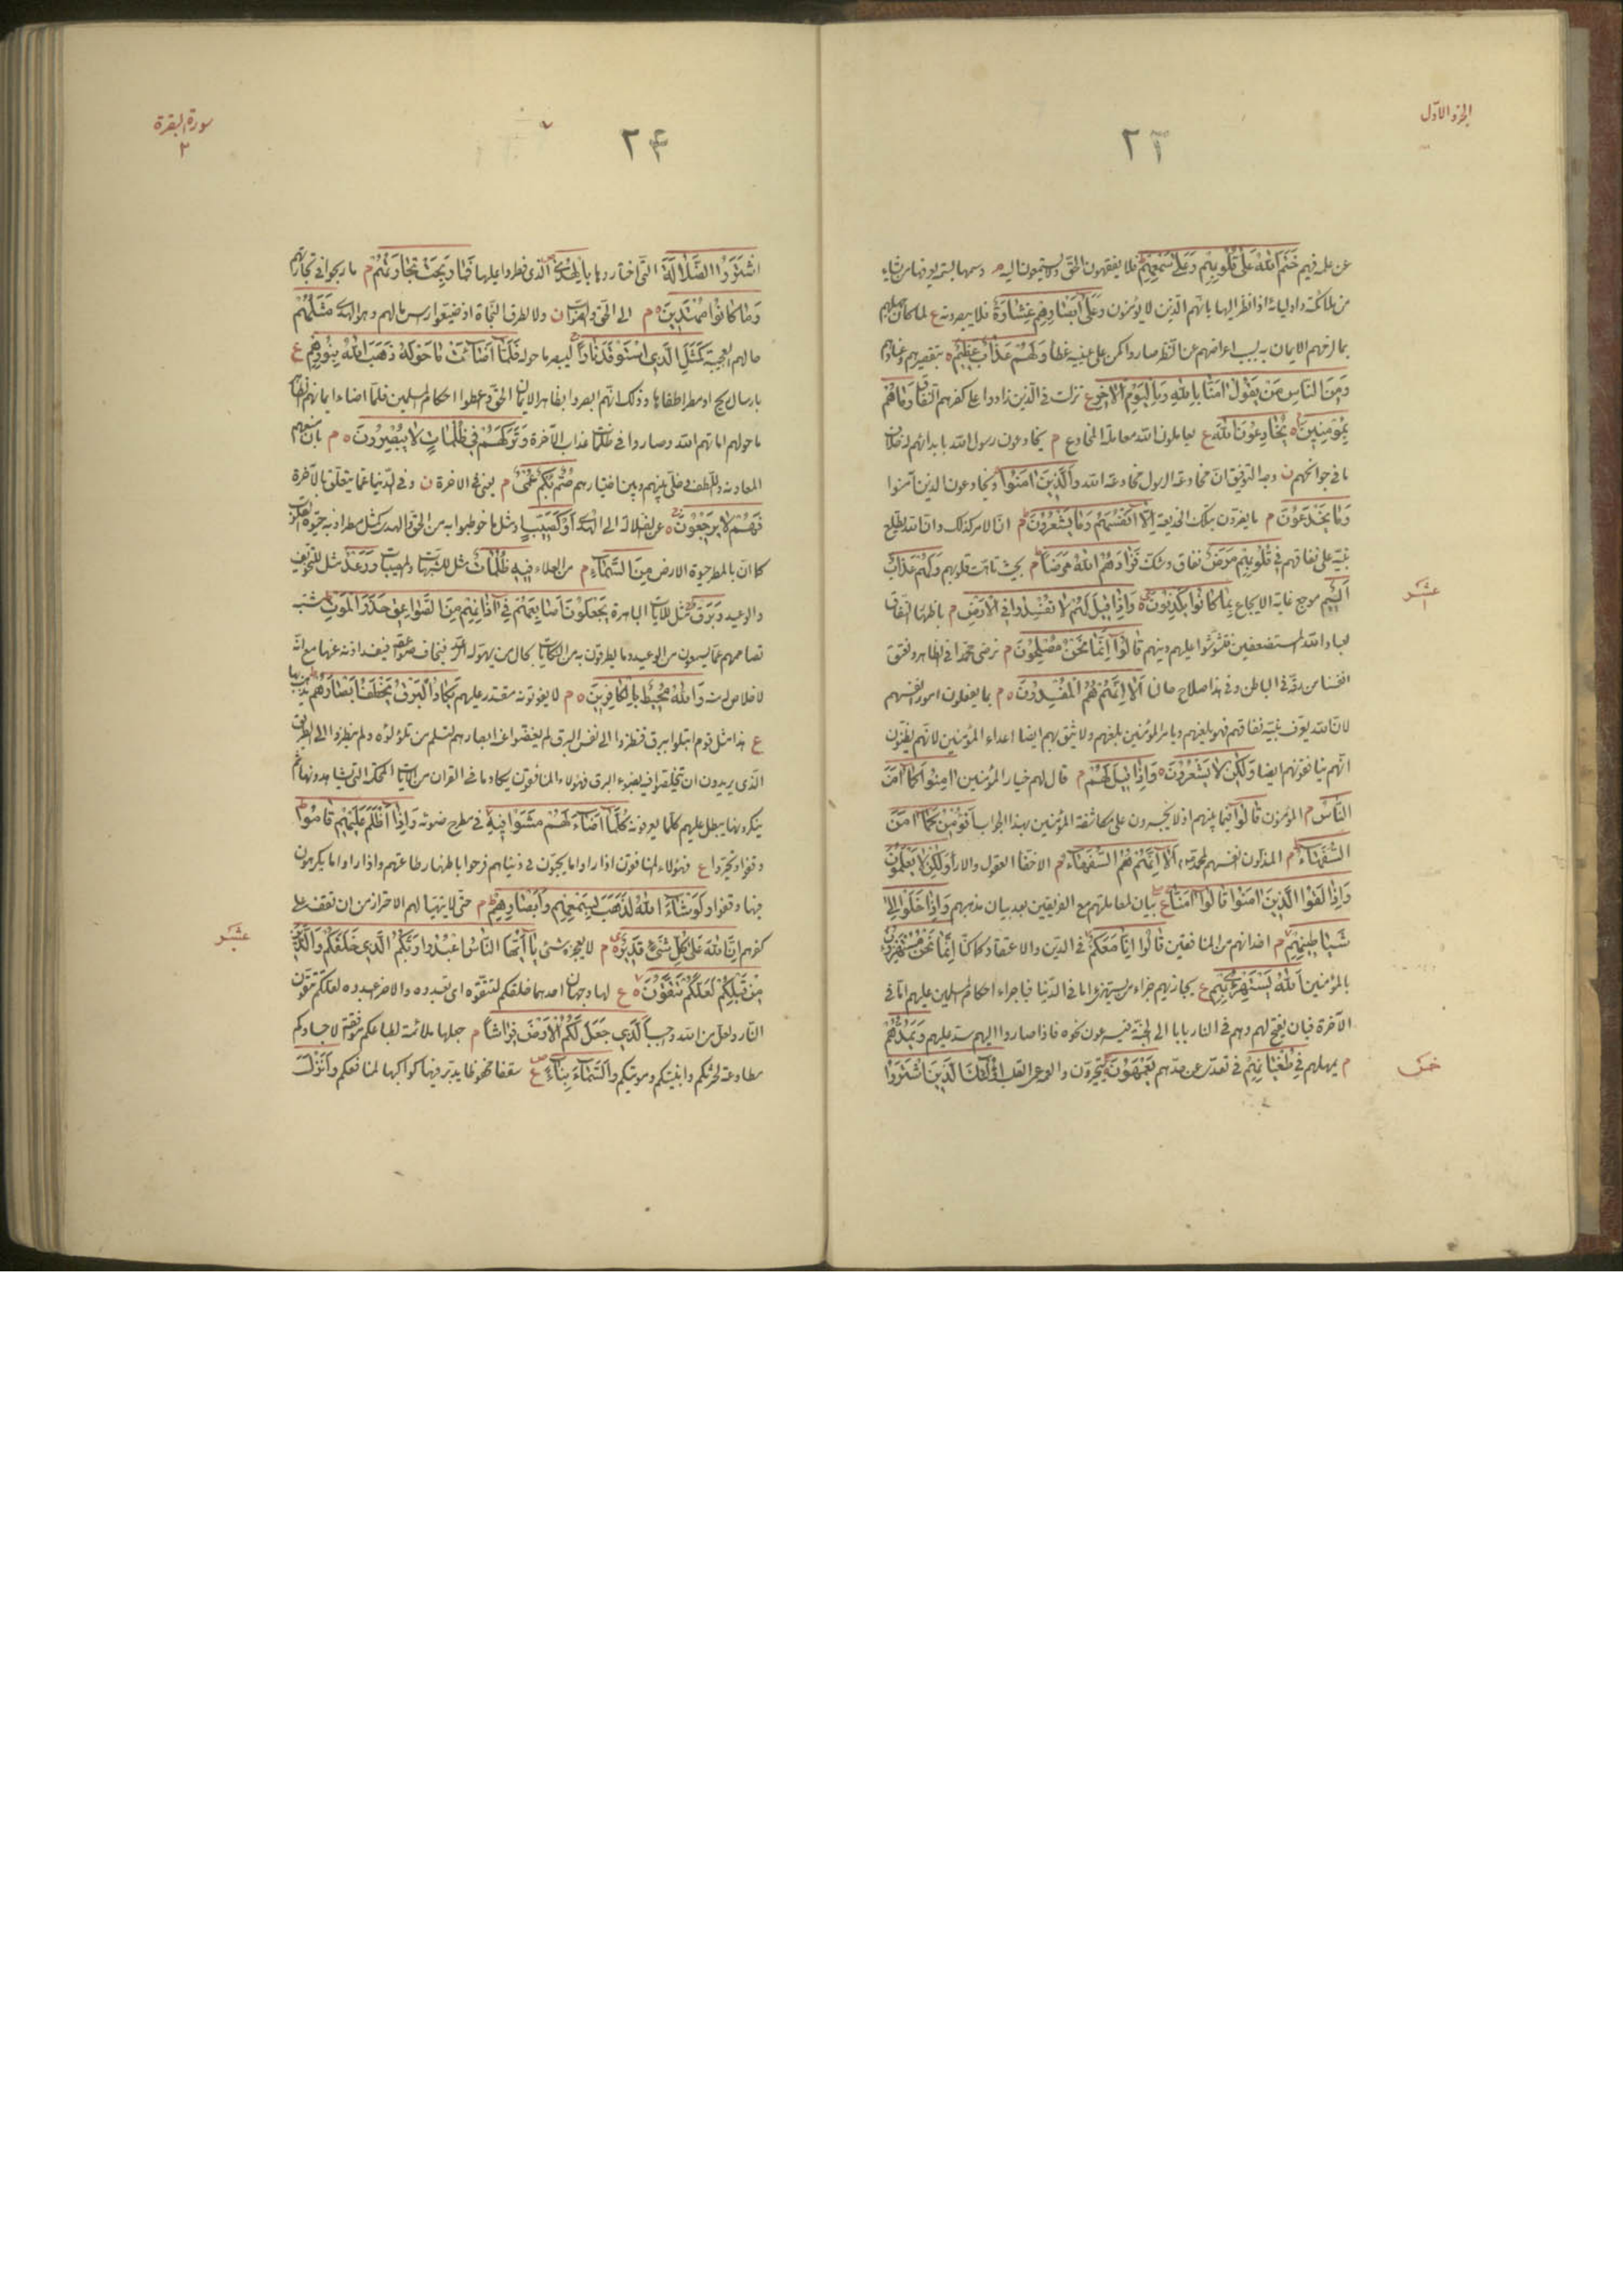 الجزء الاوّل
٢٣
عن علمه فيهم خَتَمَ اللهُ عَلَى قُلُوبِهِمْ وَعَلَى سَمْعِهِمْ فلا يفقهون الحقّ ولا يستمعون اليه م وسمها بسمة يعرفها من يشاء
من ملائكته واوليائه اذا نظر اليها بانّهم الّذين لا يؤمنون وَعَلَى اَبْصَارِهِمْ غِشَاوَةٌ فلا يبصرونه ع لما كان
بما لزمهم الايمان به بسبب اعراضهم عن النّظر صاروا كمن على عينيه غطاء وَلَهُمْ عَذَابٌ عَظِيمٌ ه بتقصيرهم وعنادهم
وَمِنَ النَّاسِ مَنْ يَقُولُ اٰمَنَّا بِاللهِ وَبِالْيَوْمِ الْاٰخِرِ ع نزلت فى الّذين زادوا على كفرهم النّفاق وَمَا هُمْ
بِمُؤْمِنِينَ ه يُخَادِعُونَ اللهَ ع يعاملون الله معاملة المخادع م يخادعون رسول الله بابدائهم له خلاف
ما فى جوانحهم ن وجه التوفيق انّ مخادعة الرسول مخادعة الله وَالَّذِينَ اٰمَنُوا ويخادعون الذين آمنوا
وَمَا يَخْدَعُونَ م ما يضرّون بتلك الخديعة اِلَّا اَنْفُسَهُمْ وَمَا يَشْعُرُونَ م انّ الامر كذلك وانّ الله يطلع
نبيّه على نفاقهم فِي قُلُوبِهِمْ مَرَضٌ نفاق وشك فَزَادَهُمُ اللهُ مَرَضًا م بحيث تاهت قلوبهم وَلَهُمْ عَذَابٌ
اَلِيمٌ موجع غاية الايجاع بِمَا كَانُوا يَكْذِبُونَ ه وَاِذَا قِيلَ لَهُمْ لَا تُفْسِدُوا فِي الْاَرْضِ م باظهار النّفاق
عشر
لعباد الله المستضعفين فتشوّشوا عليهم دينهم قَالُوا اِنَّمَا نَحْنُ مُصْلِحُونَ م نرضى محمّدا فى الظاهر ونعتق
انفسنا من رقّه فى الباطن وفى هذا صلاح حالنا اَلَا اِنَّهُمْ هُمُ الْمُفْسِدُونَ ه م بما يفعلون امور انفسهم
لانّ الله يعرّف نبيّه نفاقهم فهو يلعنهم ويأمر المؤمنين بلعنهم ولا يثق بهم ايضا اعداء المؤمنين لانّهم يظنّون
انّهم ينافقونهم ايضا وَلٰكِنْ لَا يَشْعُرُونَ ه وَاِذَا قِيلَ لَهُمْ م قال لهم خيار المؤمنين اٰمِنُوا كَمَا اٰمَنَ
النَّاسُ م المؤمنون قَالُوا فيما بينهم اذ لا يجسرون على مكاشفة المؤمنين بهذا الجواب اَنُؤْمِنُ كَمَا اٰمَنَ
السُّفَهَاءُ م المذلّون انفسهم لمحمّد اَلَا اِنَّهُمْ هُمُ السُّفَهَاءُ م الاخفّاء العقول والاراء وَلٰكِنْ لَا يَعْلَمُونَ
وَاِذَا لَقُوا الَّذِينَ اٰمَنُوا قَالُوا اٰمَنَّا ع بيان لمعاملتهم مع الفريقين بعد بيان مذهبهم وَاِذَا خَلَوْا اِلَى
شَيَاطِينِهِمْ م اخدانهم من المنافقين قَالُوا اِنَّا مَعَكُمْ فى الدّين والاعتقاد كما كنّا اِنَّمَا نَحْنُ مُسْتَهْزِؤُنَ
بالمؤمنين اَللهُ يَسْتَهْزِئُ بِهِمْ ع يجازيهم جزاء من يستهزء امّا فى الدّنيا فباجراء احكام المسلمين عليهم امّا فى
الآخرة فبان يفتح لهم وهم فى النار بابا الى الجنّة فيسرعون نحوه فاذا صاروا اليهم سدّ عليهم وَيَمُدُّهُمْ
م يمهلهم فِي طُغْيَانِهِمْ فى تعدّى عن حدّهم يَعْمَهُونَ يتحيّرون والعمه عمى القلب اُولٰئِكَ الَّذِينَ اشْتَرَوُا
سورة البقرة
٢
٢٤
اشْتَرَوُا الضَّلَالَةَ التى اختاروها بِالْهُدَى الّذى فطروا عليها فَمَا رَبِحَتْ تِجَارَتُهُمْ م ما ربحوا فى تجارتهم
وَمَا كَانُوا مُهْتَدِينَ ه م الى الحقّ والصّواب ن ولا لطرق النّجاة اذ ضيّعوا رأس مالهم وهو الهدى مَثَلُهُمْ
حالهم العجيبة كَمَثَلِ الَّذِي اسْتَوْقَدَ نَارًا ليبصر ما حوله فَلَمَّا اَضَاءَتْ مَا حَوْلَهُ ذَهَبَ اللهُ بِنُورِهِمْ ع
بارسال ريح او مطر اطفأها وذلك انّهم ابصروا بظاهر الايمان الحقّ واعطوا احكام المسلمين فلمّا اضاء ايمانهم الظاهر
ما حولهم اماتهم الله وصاروا فى ظلمات عذاب الآخرة وَتَرَكَهُمْ فِي ظُلُمَاتٍ لَا يُبْصِرُونَ ه م بان منعهم
المعاونة واللّطف وخلّى بينهم وبين اختيارهم صُمٌّ بُكْمٌ عُمْيٌ م يعنى فى الاخرة ن وفى الدّنيا عمّا يتعلّق بالآخرة
فَهُمْ لَا يَرْجِعُونَ ه عن الضلالة الى الهدى اَوْ كَصَيِّبٍ ومثل ما خوطبوا به من الحقّ والهدى كمثل مطر اذ به حيوة القلب
كما ان بالمطر حيوة الارض مِنَ السَّمَاءِ م من العلاء فِيهِ ظُلُمَاتٌ مثل للشبهات والمصيبات وَرَعْدٌ مثل للتخويف
والوعيد وَبَرْقٌ مثل للآيات الباهرة يَجْعَلُونَ اَصَابِعَهُمْ فِي اٰذَانِهِمْ مِنَ الصَّوَاعِقِ حَذَرَ الْمَوْتِ شبّه
تصاممهم عمّا يسمعون من الوعيد وما يطرقون به من النكايات بحال من يهوّله الرّعد فيخاف صواعقه فيسدّ اذنه عنها مع انّه
لا خلاص له منه وَاللهُ مُحِيطٌ بِالْكَافِرِينَ ه م لا يفوتونه مقتدر عليهم يَكَادُ الْبَرْقُ يَخْطَفُ اَبْصَارَهُمْ يذهب بها
ع هذا مثل قوم ابتلوا ببرق فنظروا الى نفس البرق لم يغضّوا عنه ابصارهم لتسلم من تلألؤه ولم ينظروا الى الطريق
الّذى يريدون ان يتخلّصوا فيه بضوء البرق فهؤلاء المنافقون يكاد ما فى القران من الآيات المحكمة التى يشاهدونها ثمّ
ينكرونها يبطل عليهم كلّما يعرفونه كُلَّمَا اَضَاءَ لَهُمْ مَشَوْا فِيهِ فى مطرح ضوئه وَاِذَا اَظْلَمَ عَلَيْهِمْ قَامُوا
وقفوا وتحيّروا ع فهؤلاء المنافقون اذا راوا ما يحبّون فى دنياهم فرحوا باظهار طاعتهم واذا راوا ما يكرهون
فيها وقفوا وَلَوْ شَاءَ اللهُ لَذَهَبَ بِسَمْعِهِمْ وَاَبْصَارِهِمْ م حتّى لا يتهيّأ لهم الاحتراز من ان تقف على
كفرهم اِنَّ اللهَ عَلَى كُلِّ شَيْءٍ قَدِيرٌ ه م لا يعجزه شىء يَا اَيُّهَا النَّاسُ اعْبُدُوا رَبَّكُمُ الَّذِي خَلَقَكُمْ وَالَّذِينَ
عشر
مِنْ قَبْلِكُمْ لَعَلَّكُمْ تَتَّقُونَ ه ع لها وجهان احدهما خلقكم لتتّقوه اى تعبدوه والآخر اعبدوه لعلّكم تتّقون
النّار ولعلّ من الله واجب اَلَّذِي جَعَلَ لَكُمُ الْاَرْضَ فِرَاشًا م جعلها ملائمة لطباعكم موافقة لاجسادكم
مطاوعة لحرثكم وابنيتكم وموتيكم وَالسَّمَاءَ بِنَاءً ع سقفا محفوظا يدير فيها كواكبها لمنافعكم وَاَنْزَلَ